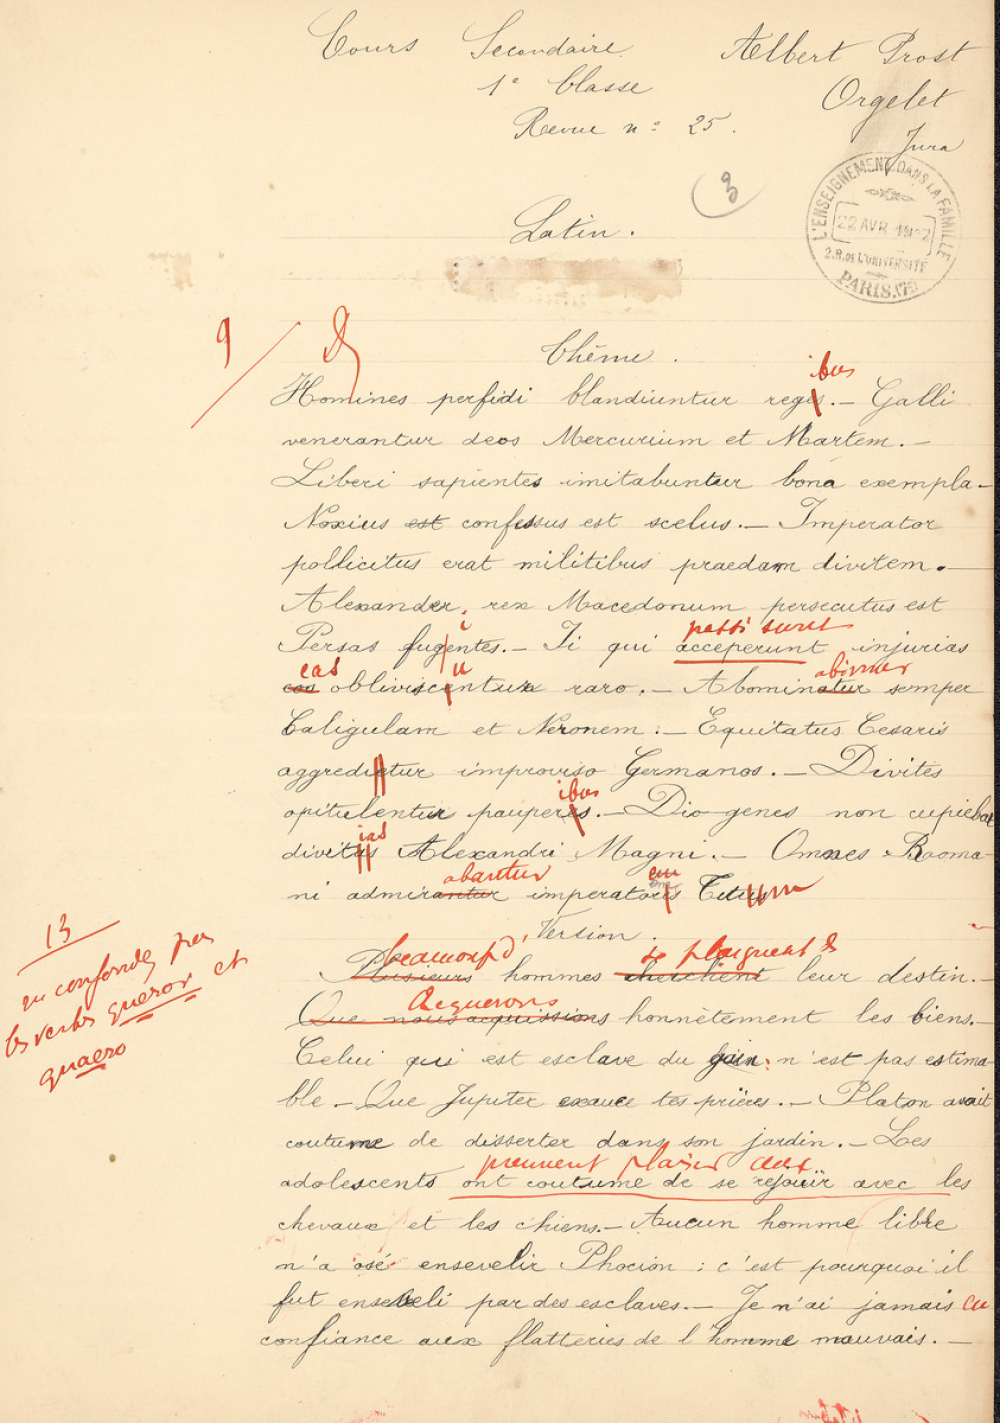 Cours Secondaire Albert Prost
1e Classe Orgelet
Revue n° 25. Jura
3
L'ENSEIGNEMENT DANS LA FAMILLE
22 AVR 1912
2.R. DE L'UNIVERSITÉ
PARIS
Latin.
9
Thême.
ibus
Homines perfidi blandiuntur reges. — Galli
venerantur deos Mercurium et Martem. —
Liberi sapientes imitabuntur bona exempla —
Noxius est confessus est scelus. — Imperator
pollicitus erat militibus praedam divitem. —
Alexander, rex Macedonum persecutus est
i passi sunt
Persas fugentes. — Ii qui acceperunt injurias
eas u abimur
eas obliviscentur raro. — Abominatur semper
Caligulam et Neronem. — Equitatus Cesaris
aggredietur improviso Germanos. — Divites
ibus
opitulentur pauperes. — Diogenes non cupiebat
ias
divitas Alexandri Magni. — Omnes Roma-
abantur em
ni admirantur imperatoris Titus um
Version.
13
on confondez pas
les verbes queror et
quaero
Beaucoup d' se plaignent de
Plusieurs hommes cherchent leur destin. —
Acquerons
Que nous acquissions honnêtement les biens. —
Celui qui est esclave du gain n'est pas estima-
ble — Que Jupiter exauce tes prières. — Platon avait
coutume de disserter dans son jardin. — Les
prennent plaisir aux
adolescents ont coutume de se rejouïr avec les
chevaux et les chiens. — Aucun homme libre
n'a osé ensevelir Phocion : c'est pourquoi il
fut enseveli par des esclaves. — Je n'ai jamais eu
confiance aux flatteries de l'homme mauvais. —